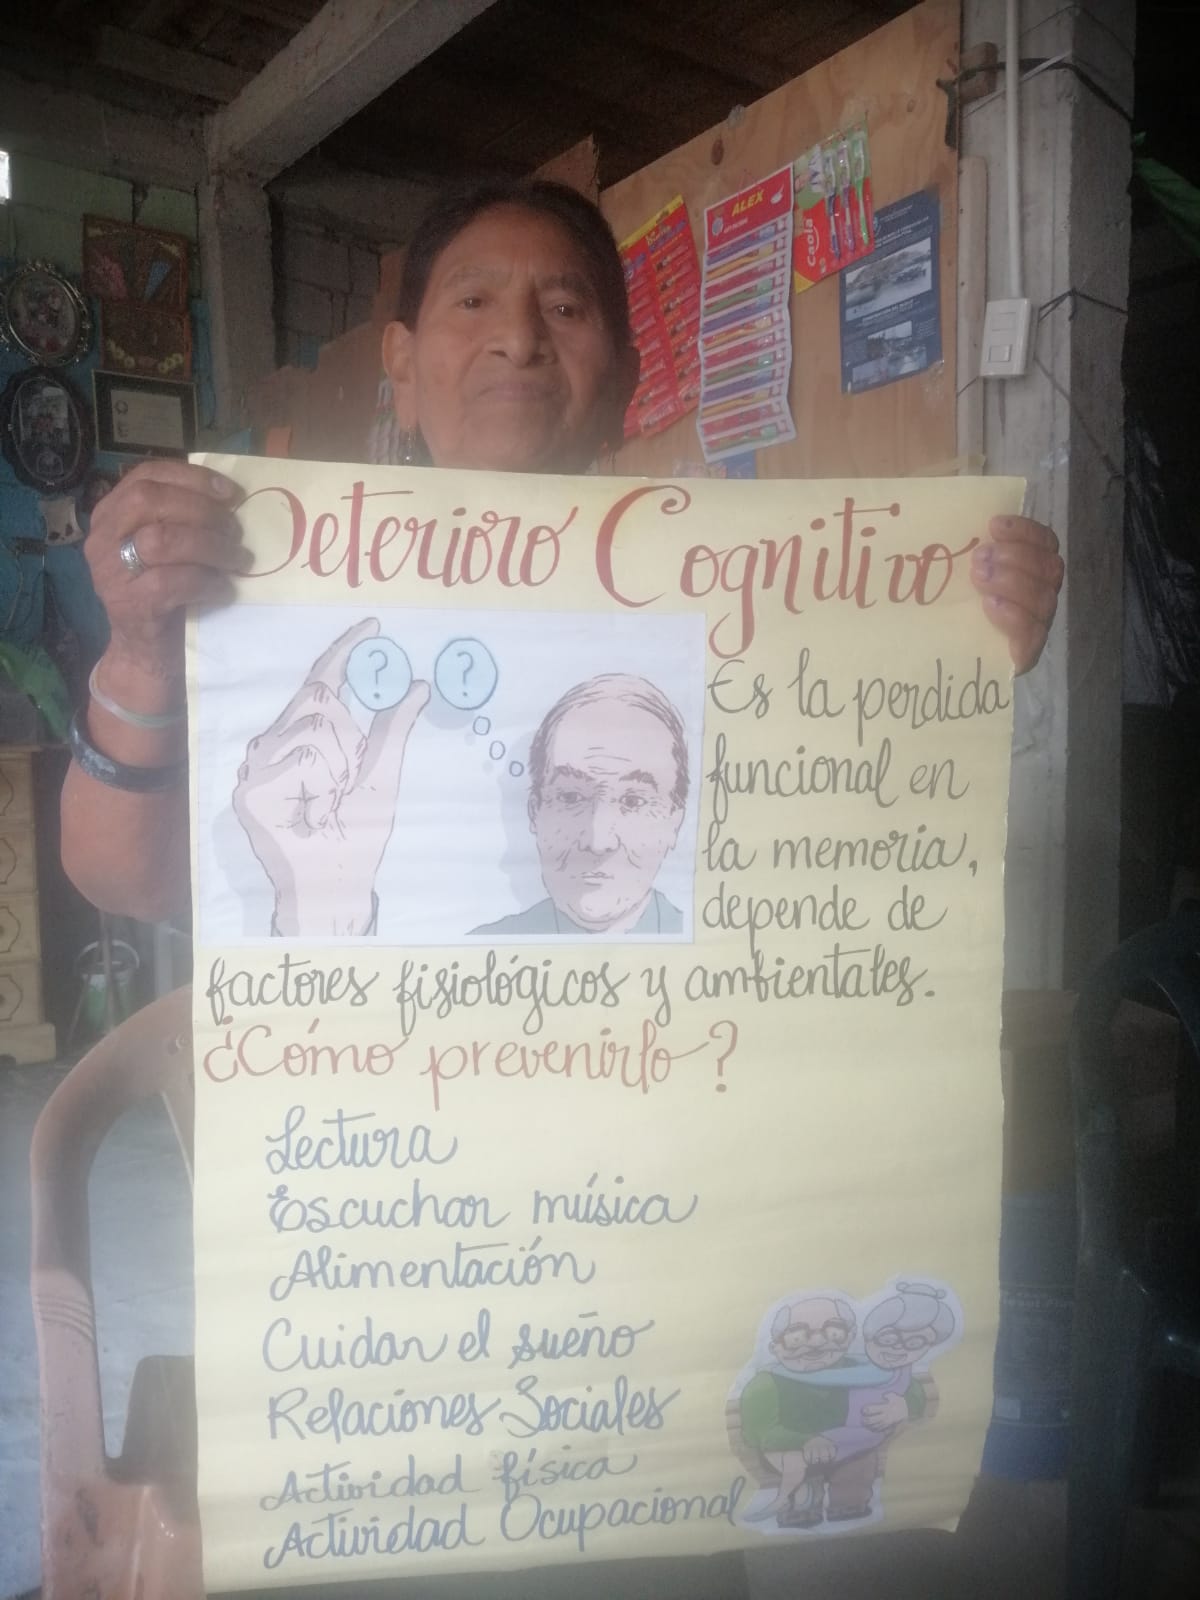 ALEX
Caola
Deterioro Cognitivo
? ?
Es la perdida
funcional en
la memoria,
depende de
factores fisiológicos y ambientales.
¿Cómo prevenirlo?
Lectura
Escuchar música
Alimentación
Cuidar el sueño
Relaciones Sociales
Actividad física
Actividad Ocupacional